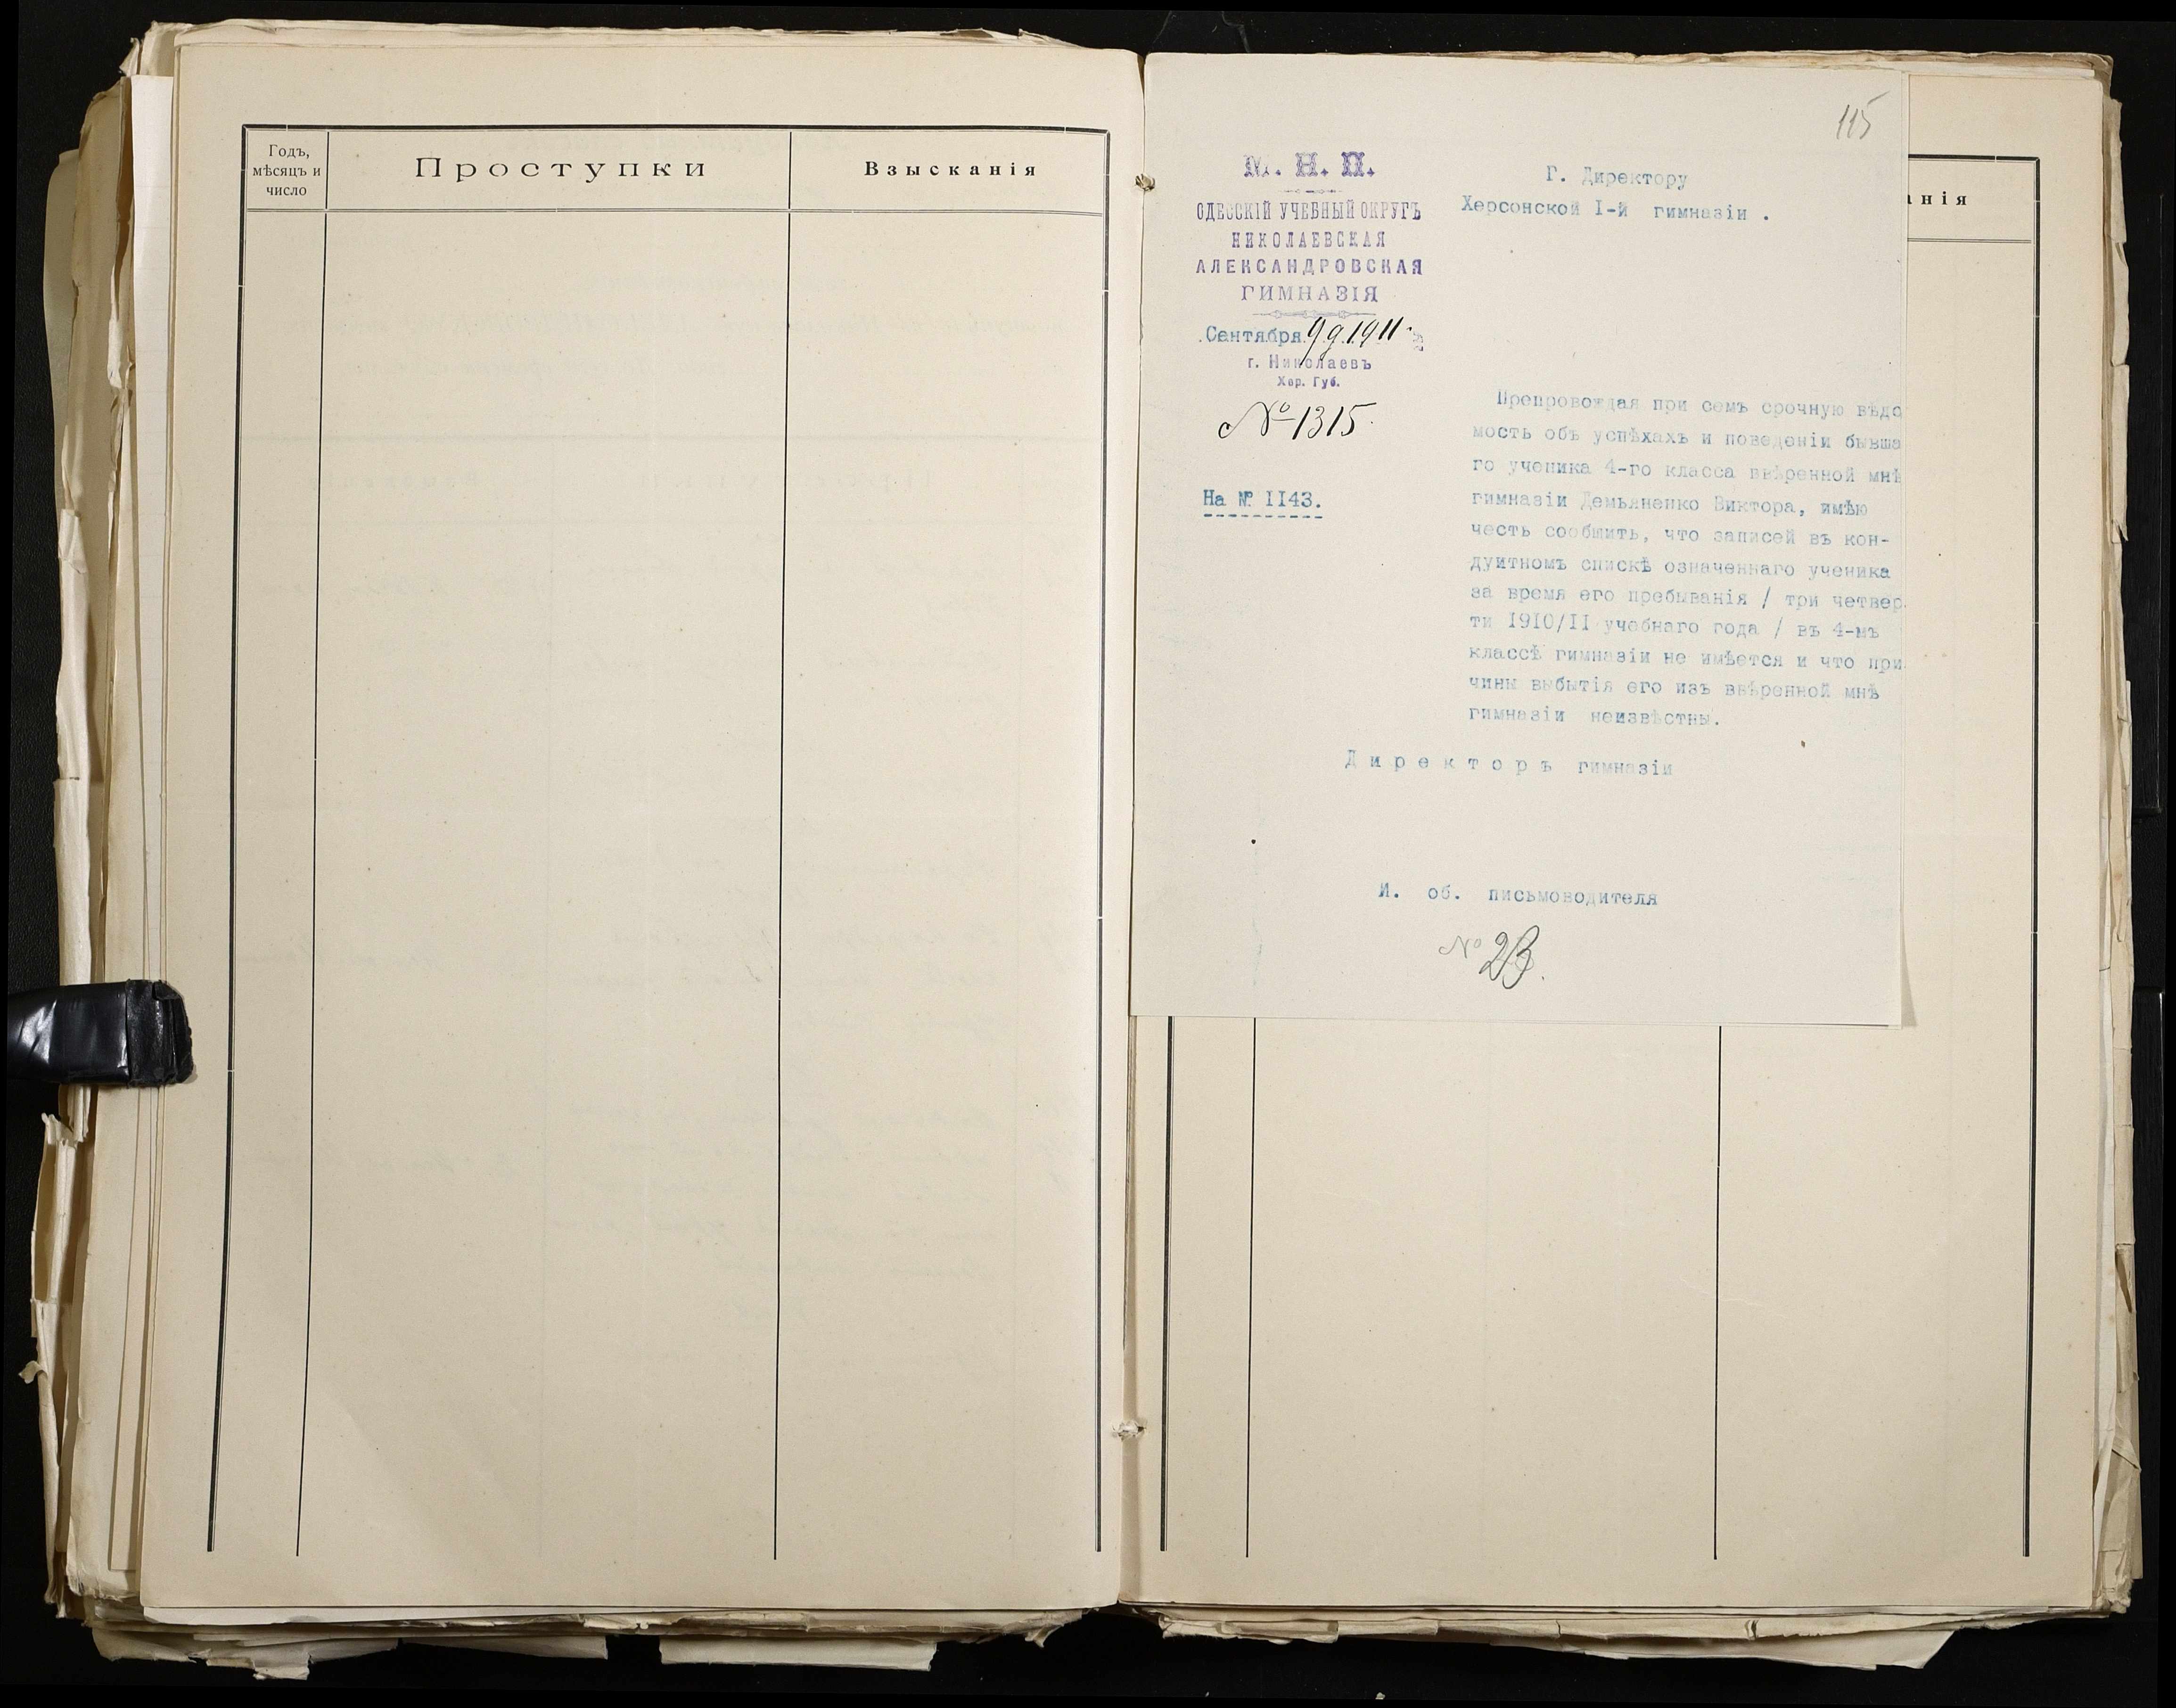 Годъ,
мѣсяцъ и
число
Проступки
Взысканія
115
М. Н. П.
ОДЕССКІЙ УЧЕБНЫЙ ОКРУГЪ
НИКОЛАЕВСКАЯ
АЛЕКСАНДРОВСКАЯ
ГИМНАЗІЯ
Сентября 9 д. 1911
г. Николаевъ
Хер. Губ.
№ 1315.
На № II43.
Г. Директору
Херсонской I-й гимназіи .
Препровождая при семъ срочную вѣдо
мость объ успѣхахъ и поведеніи бывша
го ученика 4-го класса ввѣренной мнѣ
гимназіи Демьяненко Виктора, имѣю
честь сообщить, что записей въ кон-
дуитномъ спискѣ означеннаго ученика
за время его пребыванія / три четвер
ти 1910/II учебнаго года / въ 4-мъ
классѣ гимназіи не имѣется и что при
чины выбытія его изъ ввѣренной мнѣ
гимназіи неизвѣстны.
Директоръ гимназіи
И. об. письмоводителя
№
анія